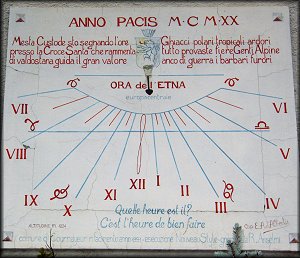 ANNO PACIS M·C·M·XX
Mesta Custode sto segnando l'ore
presso la Croce Santa che rammenta
di valdostana guida il gran valore
Ghiacci polari tropicali ardori
tutto provaste fiere Genti Alpine
anco di guerra i barbari furori
ORA dell'ETNA
europacentrale
VII
VIII
IX
X
XI
XII
I
II
III
IV
V
VI
Quelle heure est il?
C'est l'heure de bien faire
ALTITUDINE Mt.